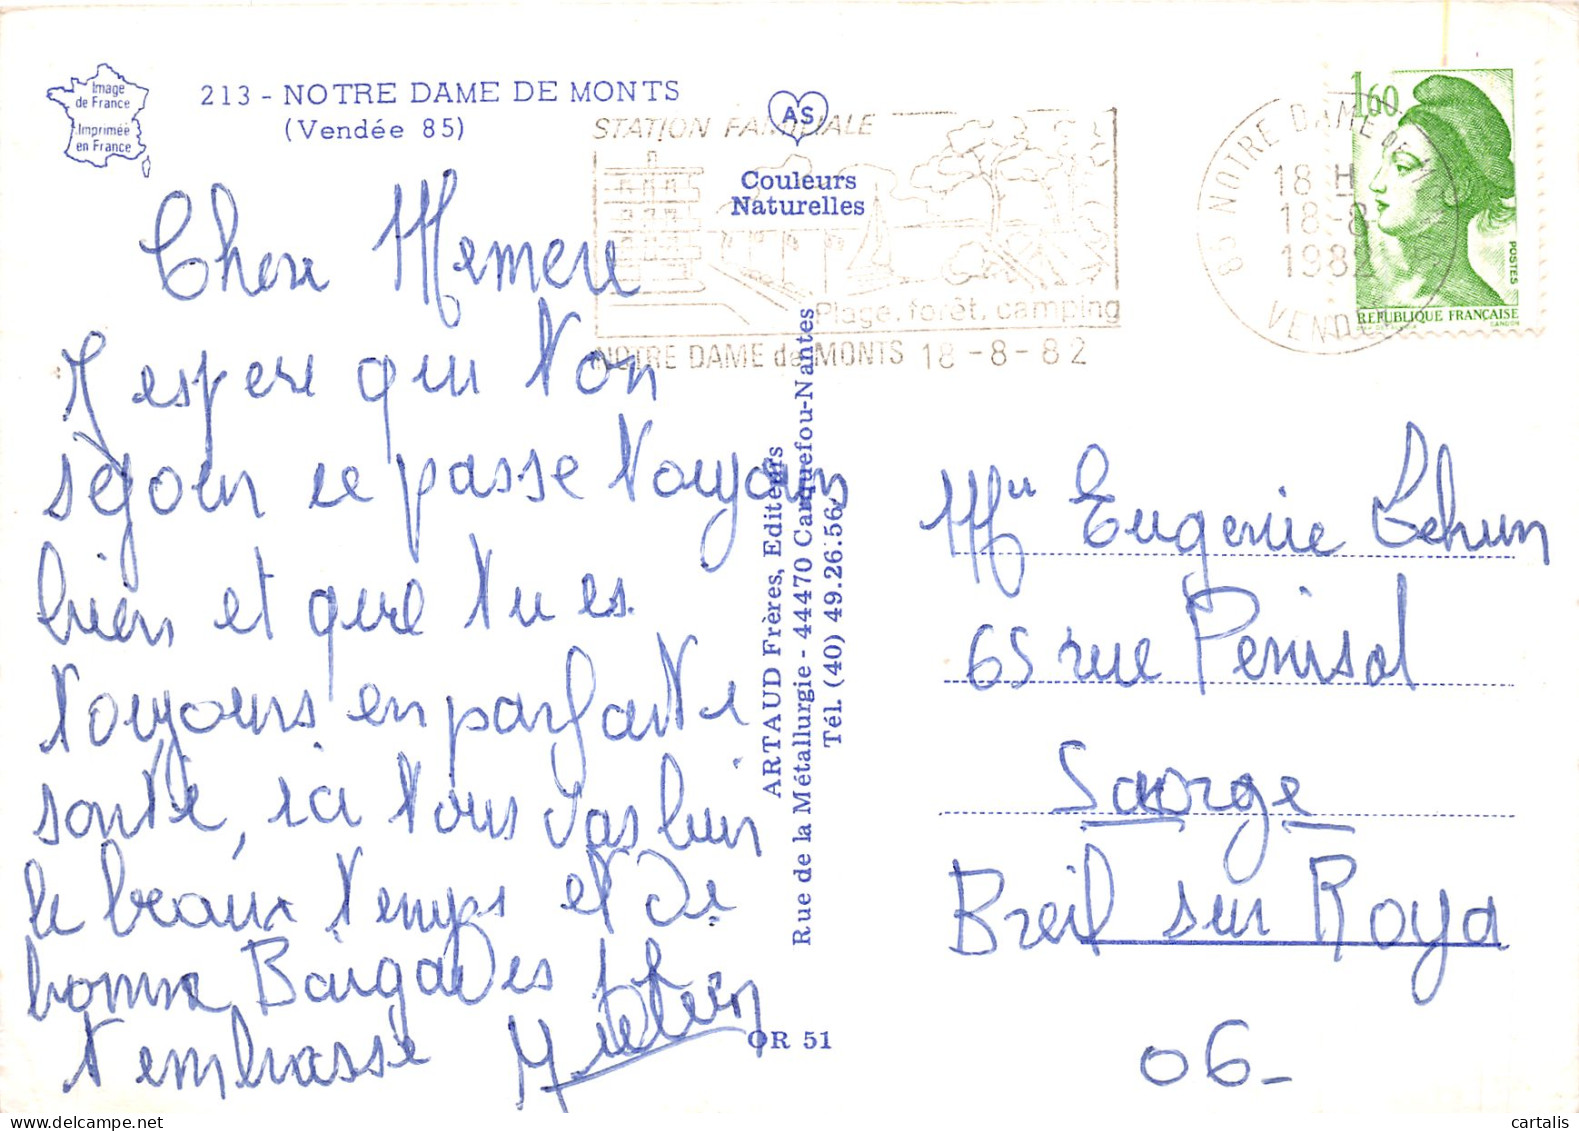 Image
de France
Imprimée
en France
213 - NOTRE DAME DE MONTS
(Vendée 85)
AS
Couleurs
Naturelles
STATION FAMILIALE
Plage, forêt, camping
NOTRE DAME de MONTS 18-8-82
85 NOTRE DAME DE
18 H
18-8
1982
VENDÉE
1,60
POSTES
REPUBLIQUE FRANÇAISE
GANDON
Chere Memere
J espere que ton
séjour se passe toujours
bien et que tu es
toujours en parfaite
santé, ici tous vas bien
le beaux temps et de
bonne Baigades
t'embrasse
ARTAUD Frères, Editeurs
Rue de la Métallurgie - 44470 Carquefou-Nantes
Tél. (40) 49.26.56
OR 51
Eugenie Lehun
65 rue Penisol
Saorge
Breil sur Roya
06_
cartalis
www.delcampe.net